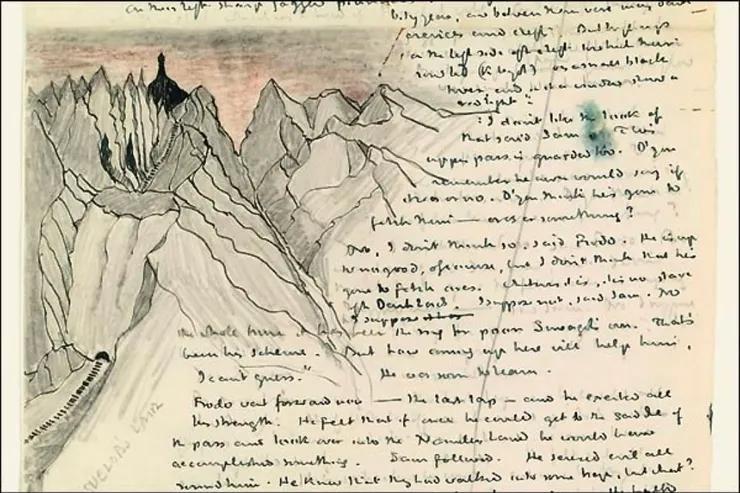 on their left sharp jagged
between them were many dark
crevices and clefts. But high up
on the left side of the cleft
was a small black
tower, and in it a window showed a
red light.
"I don't like the look of
that said Sam. This
upper pass is guarded too. D'you
remember he never would say if
it was or no. D'you think he's gone to
fetch them — orcs or something?
No, I don't think so, said Frodo. He is up
to no good, of course, but I don't think that he's
gone to fetch orcs. Whatever it is, it is no slave
of the Dark Lord. I suppose not, said Sam. No
I suppose
the whole time it has been the ring for poor Smeagols own. That's
been his scheme. But how coming up here will help him,
I can't guess."
He was soon to learn.
Frodo went forward now — the last lap — and he exerted all
his strength. He felt that if once he could get to the saddle of
the pass and look over into the Nameless Land he would have
accomplished something. Sam followed. He sensed evil all
round him. He knew that they had walked into some trap, but what?